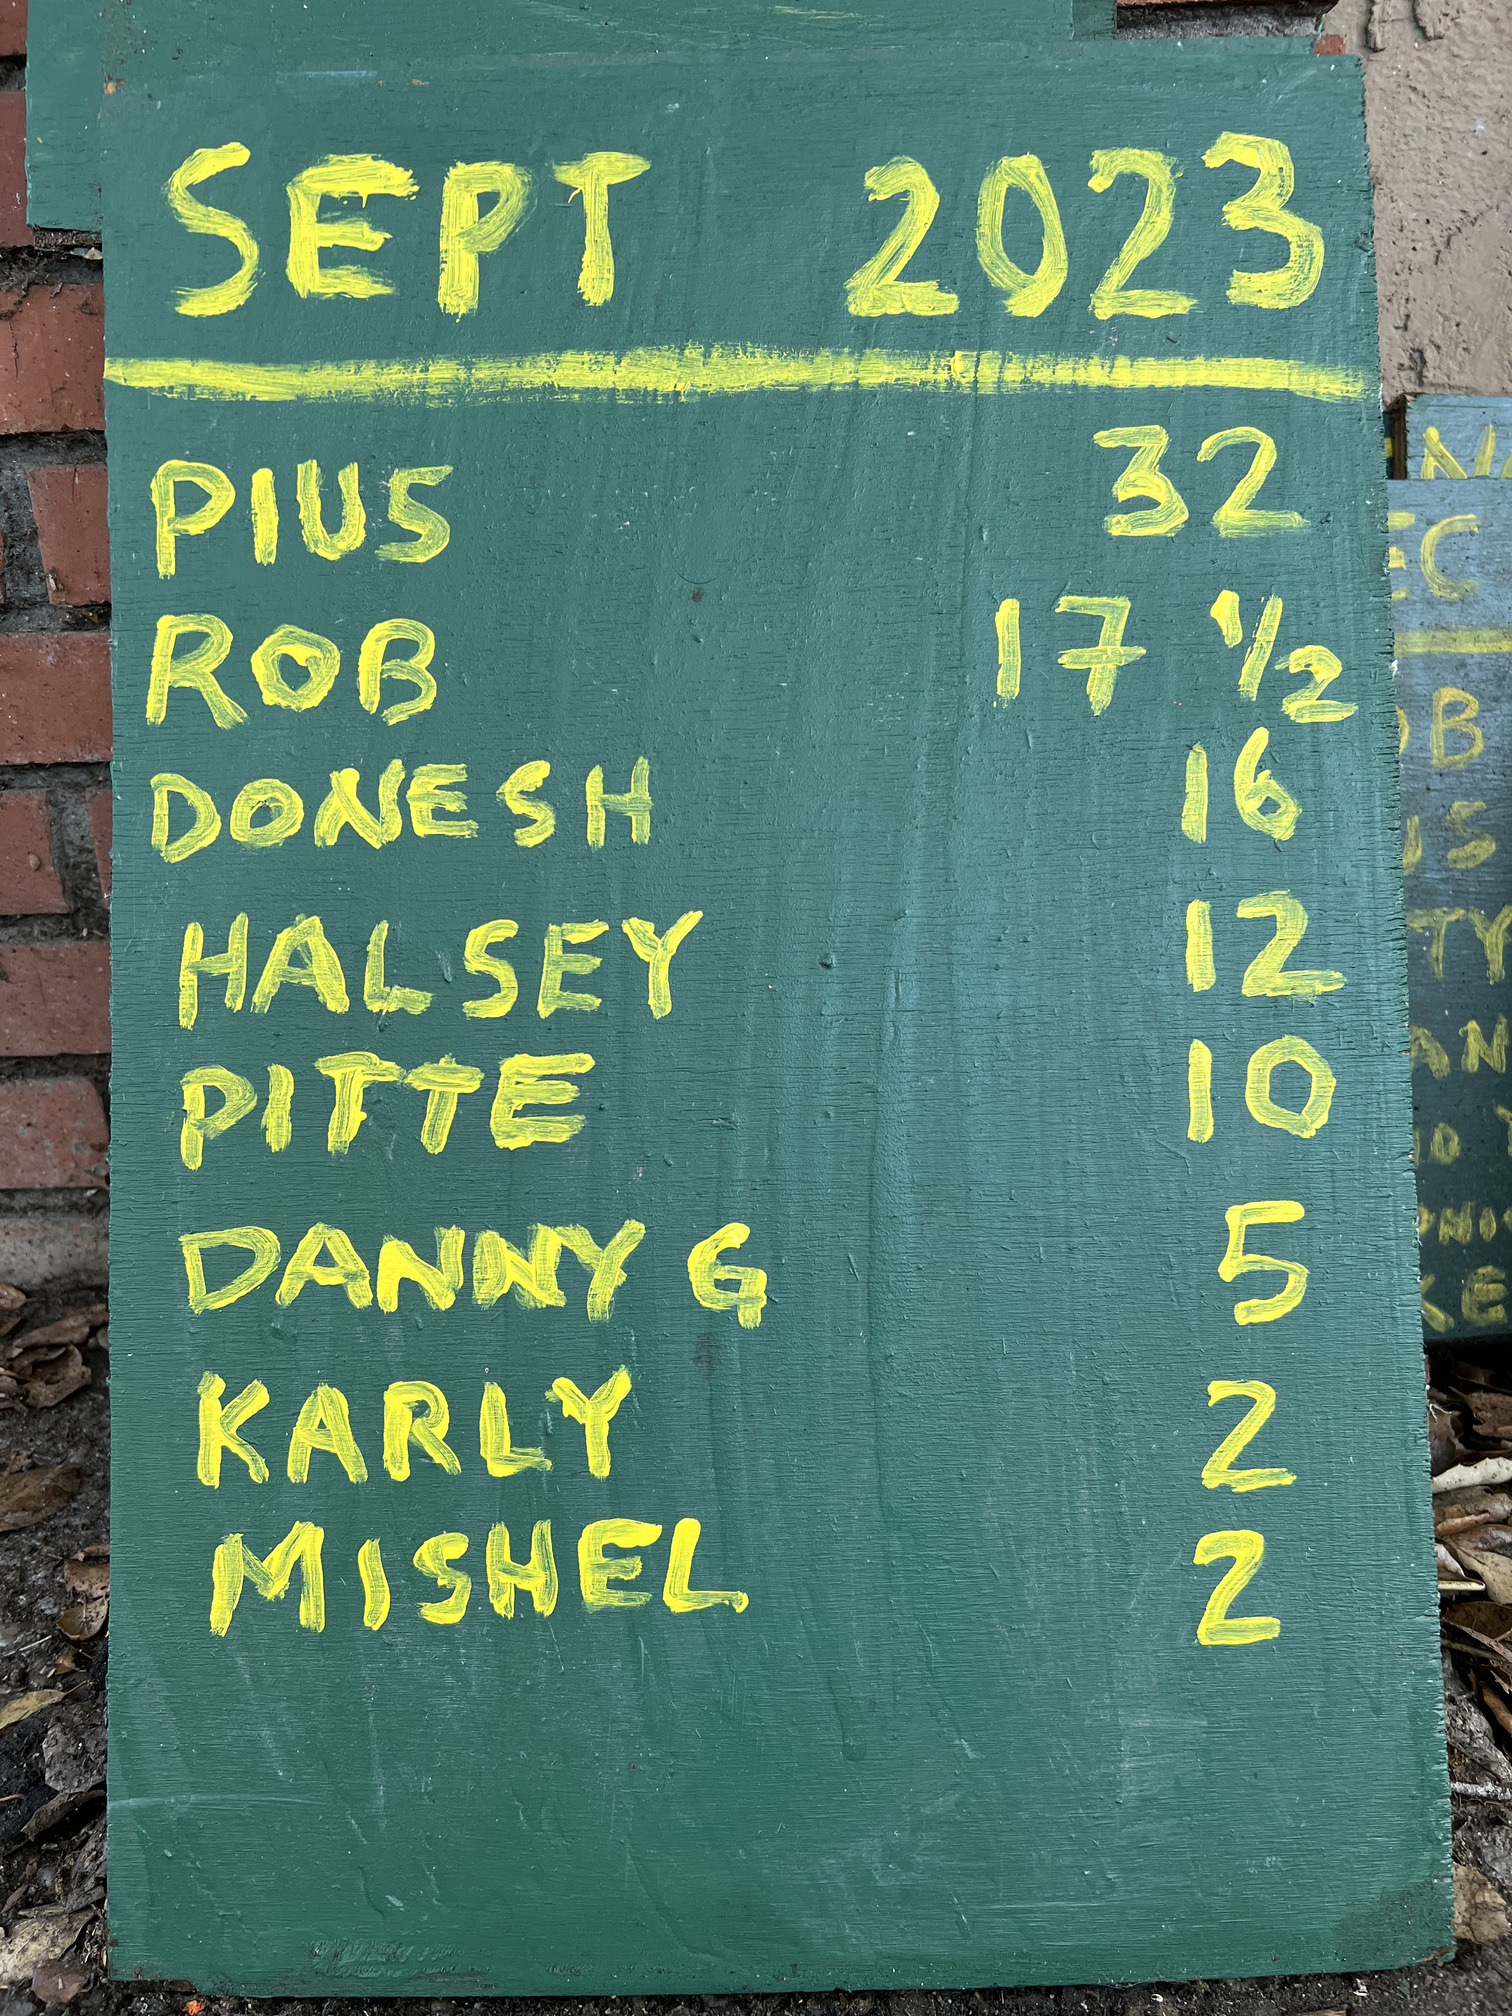 SEPT 2023
PIUS 32
ROB 17 1/2
DONESH 16
HALSEY 12
PITTE 10
DANNY G 5
KARLY 2
MISHEL 2